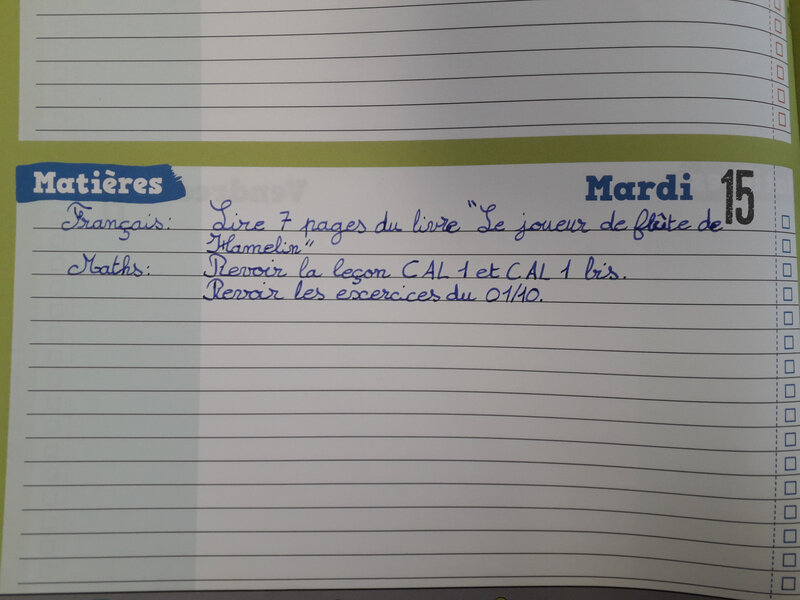 Matières
Mardi 15
Français: Lire 7 pages du livre "Le joueur de flûte de
Hamelin"
Maths: Revoir la leçon CAL 1 et CAL 1 bis.
Revoir les excercices du 01/10.